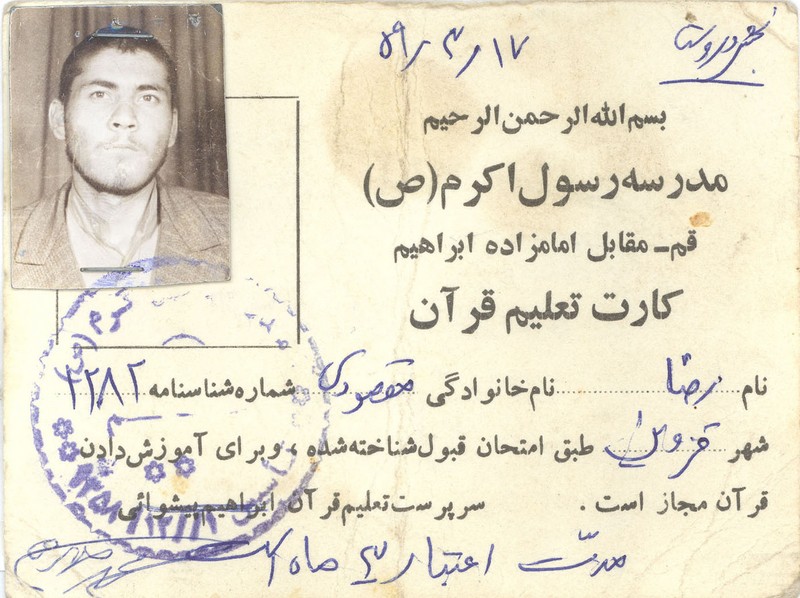 بخش و روستا
۵۹/۳/۱۷
بسم الله الرحمن الرحیم
مدرسه رسول اکرم (ص)
قم ـ مقابل امامزاده ابراهیم
کارت تعلیم قرآن
نام رضا نام خانوادگی مقصودی شماره شناسنامه
شهر قزوین طبق امتحان قبول شناخته شده ، و برای آموزش دادن
قرآن مجاز است . سرپرست تعلیم قرآن ابراهیم پیشوائی
مدت اعتبار ۳ ماه